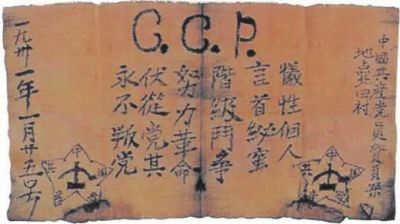 C.C.P.
中國共產党員賀頁朵
地点北田村
犧牲個人
言首秘蜜
階級鬥争
如力革命
伏從党其
永不叛党
一九卅一年一月廿五号